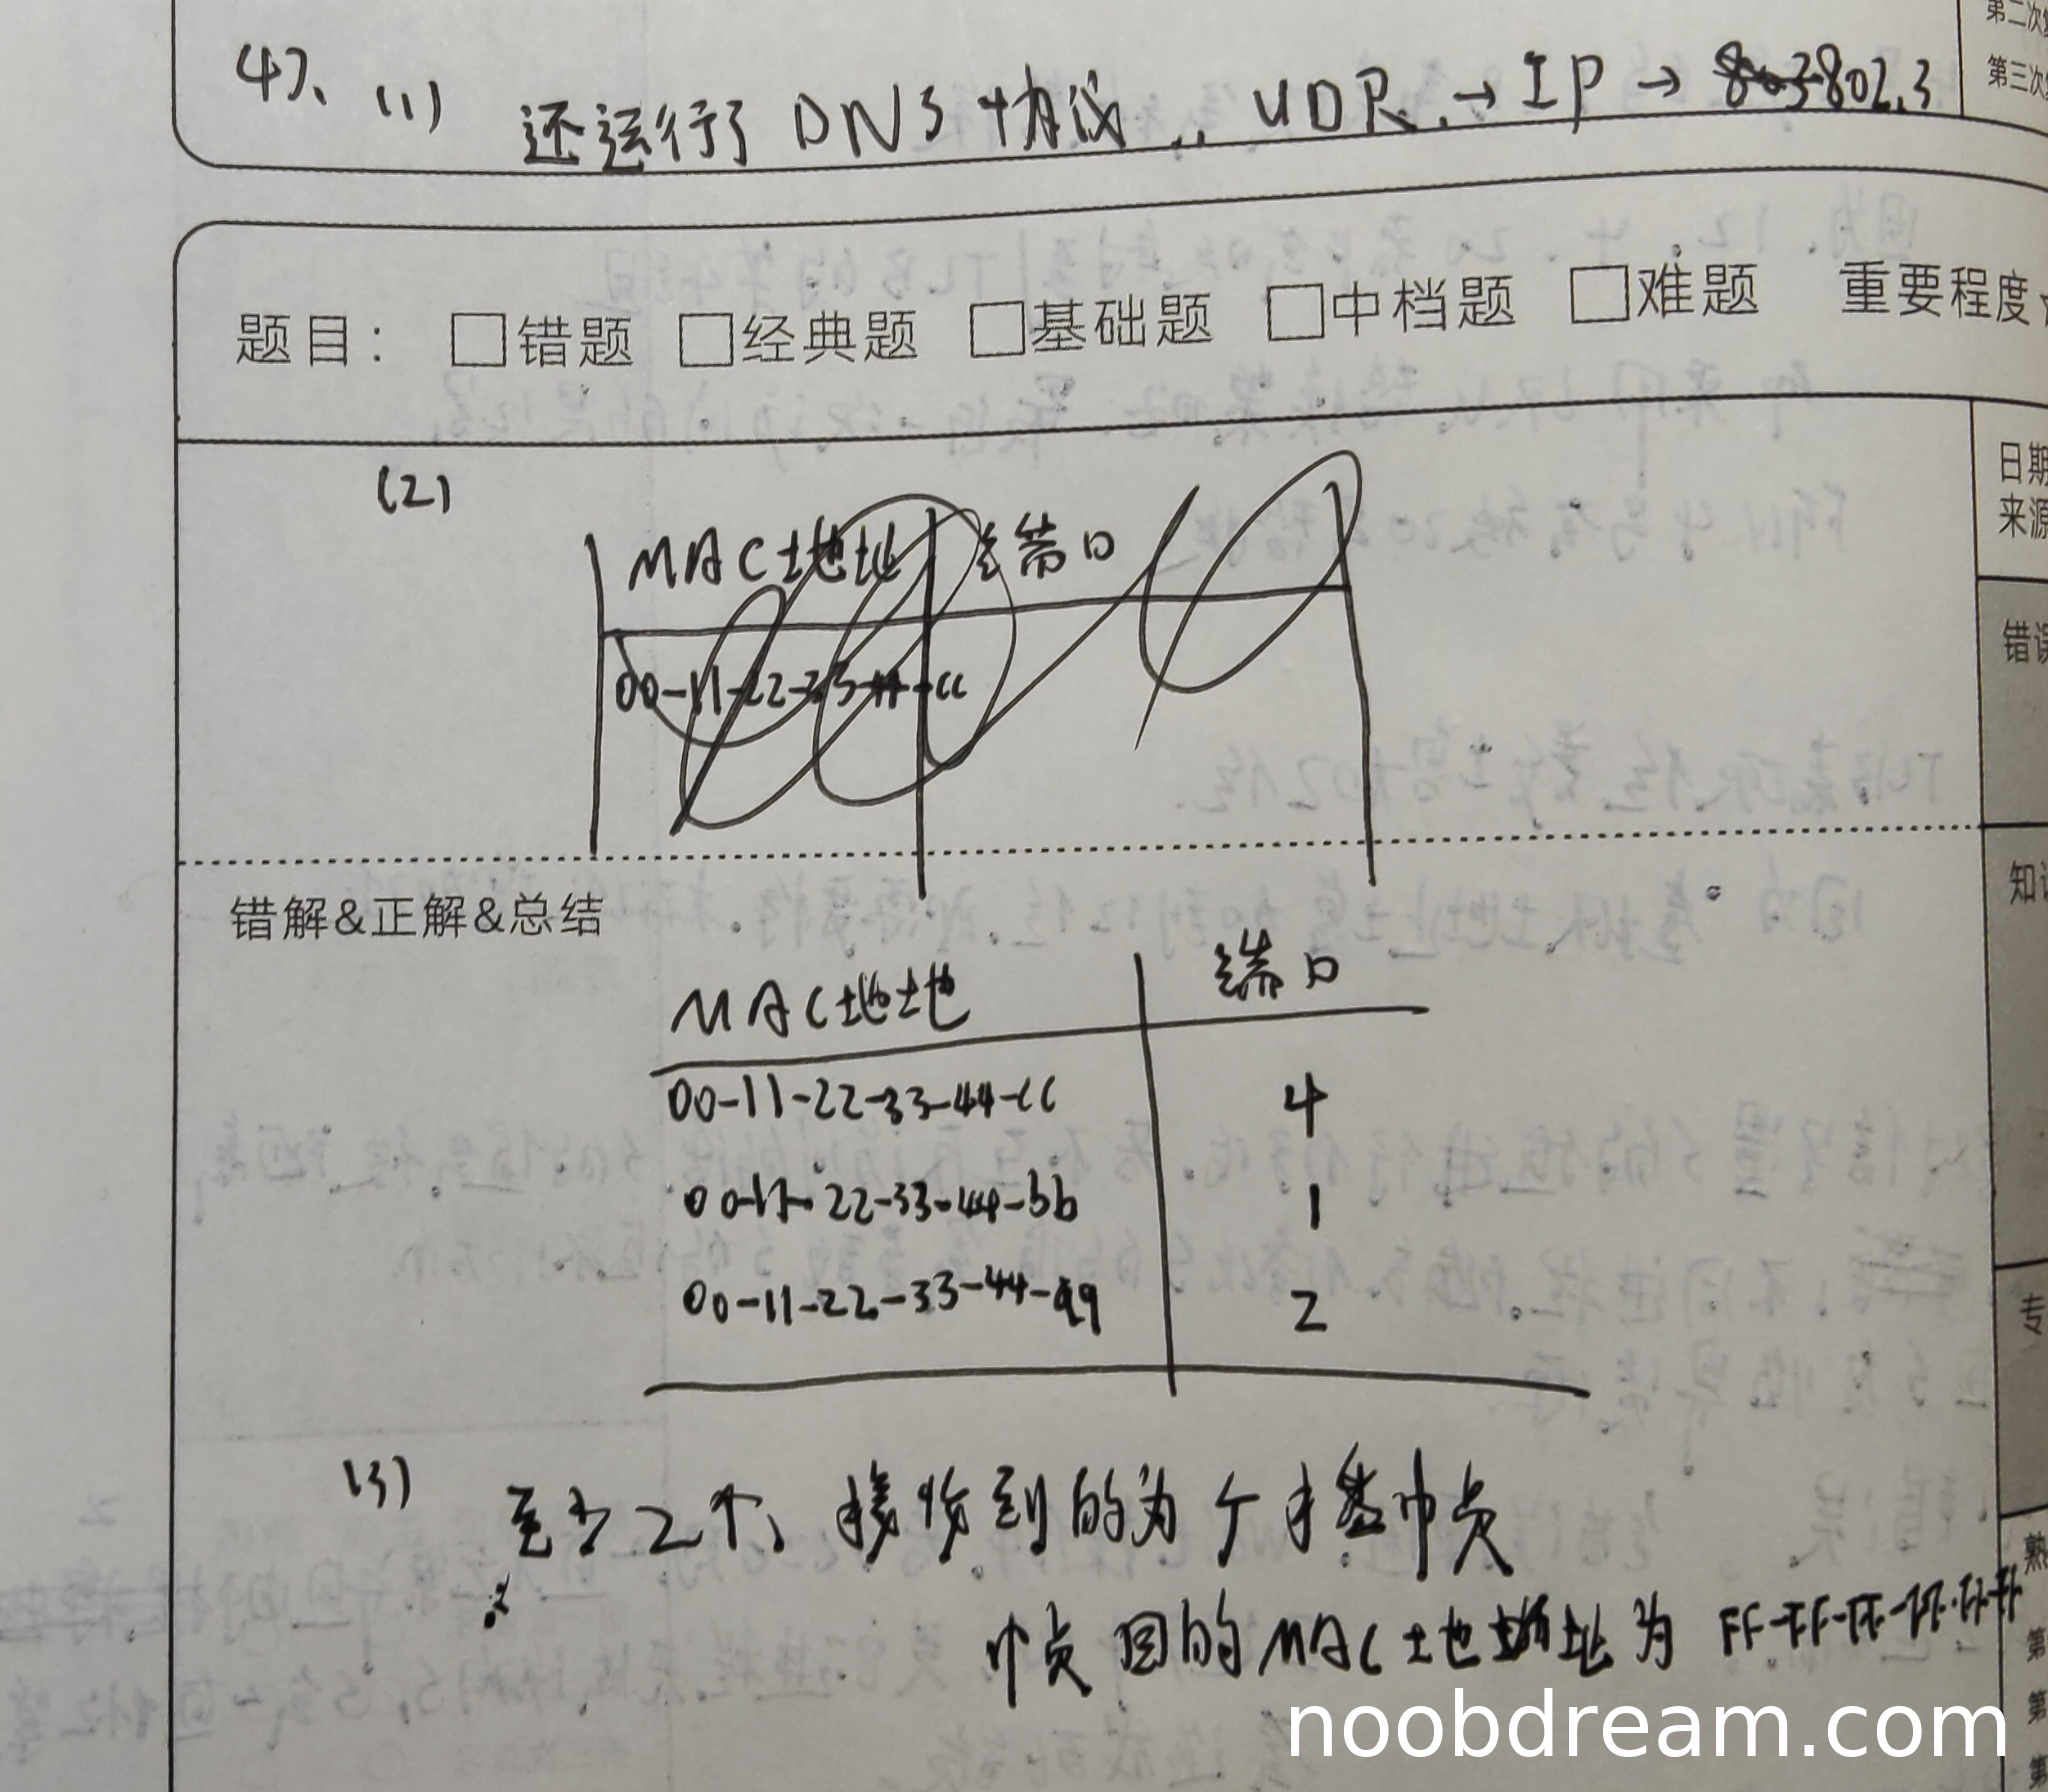 第二次
第三次
47、(1) 还运行了DNS协议.. UDP.→IP→802.3
题目： □错题 □经典题 □基础题 □中档题 □难题 重要程度
日期
来源
(2)
MAC地址 端口
00-11-22-33-44-cc
错误
错解&正解&总结
知识
MAC地地 端口
00-11-22-33-44-cc 4
00-11-22-33-44-bb 1
00-11-22-33-44-aa 2
专
(3) 至少2个、接收到的为广播帧
帧目的MAC地址为 FF-FF-FF-FF-FF-FF
熟
第
第
第
noobdream.com